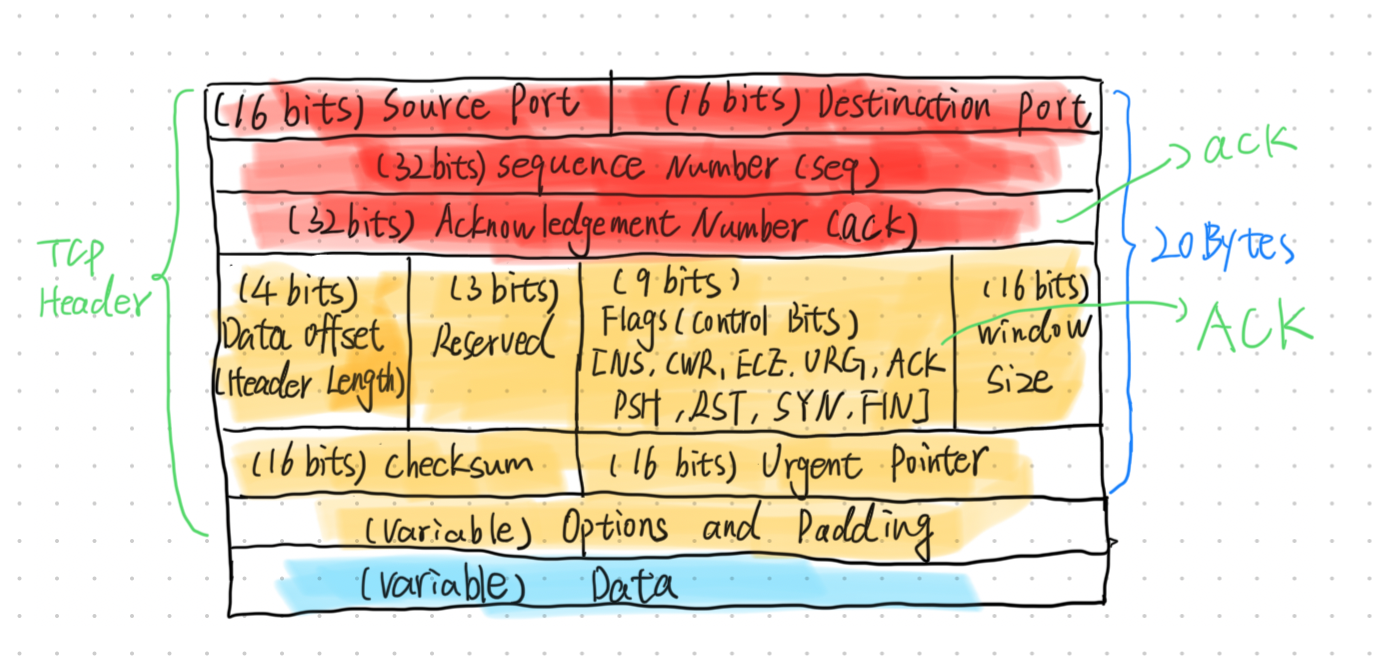 (16 bits) Source Port
(16 bits) Destination Port
(32bits) sequence Number (seq)
(32bits) Acknowledgement Number (ack)
ack
TCP
Header
20 Bytes
(4 bits)
Data offset
(Header Length)
(3 bits)
Reserved
(9 bits)
Flags (Control Bits)
[NS, CWR, ECE, URG, ACK
PSH, RST, SYN, FIN]
(16 bits)
window
size
ACK
(16 bits) checksum
(16 bits) Urgent Pointer
(variable) Options and Padding
(variable) Data